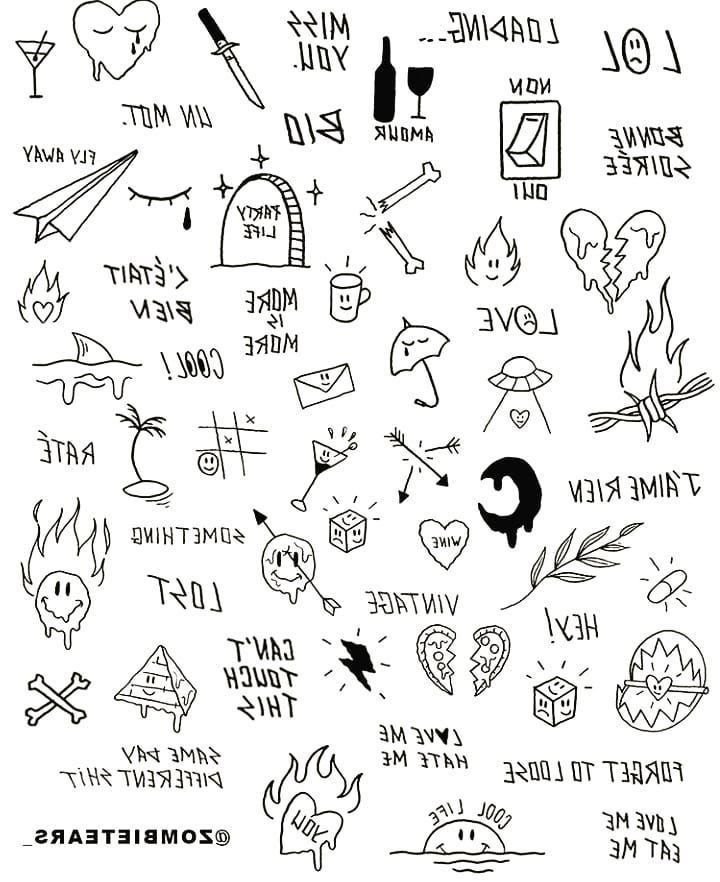 MISS
YOU.
LOADING...
LOL
UN MOT.
BIO
AMOUR
NON
OUI
BONNE
SOIRÉE
FLY AWAY
PARTY
LIFE
C'ÉTAIT
BIEN
MORE
IS
MORE
LOVE
COOL!
RATÉ
X
X
J'AIME RIEN
SOMETHING
WINE
LOST
VINTAGE
HEY!
CAN'T
TOUCH
THIS
LOVE ME
HATE ME
SAME DAY
DIFFERENT SHIT
FORGET TO LOOSE
COOL LIFE
LOVE ME
EAT ME
@ZOMBIETEARS_